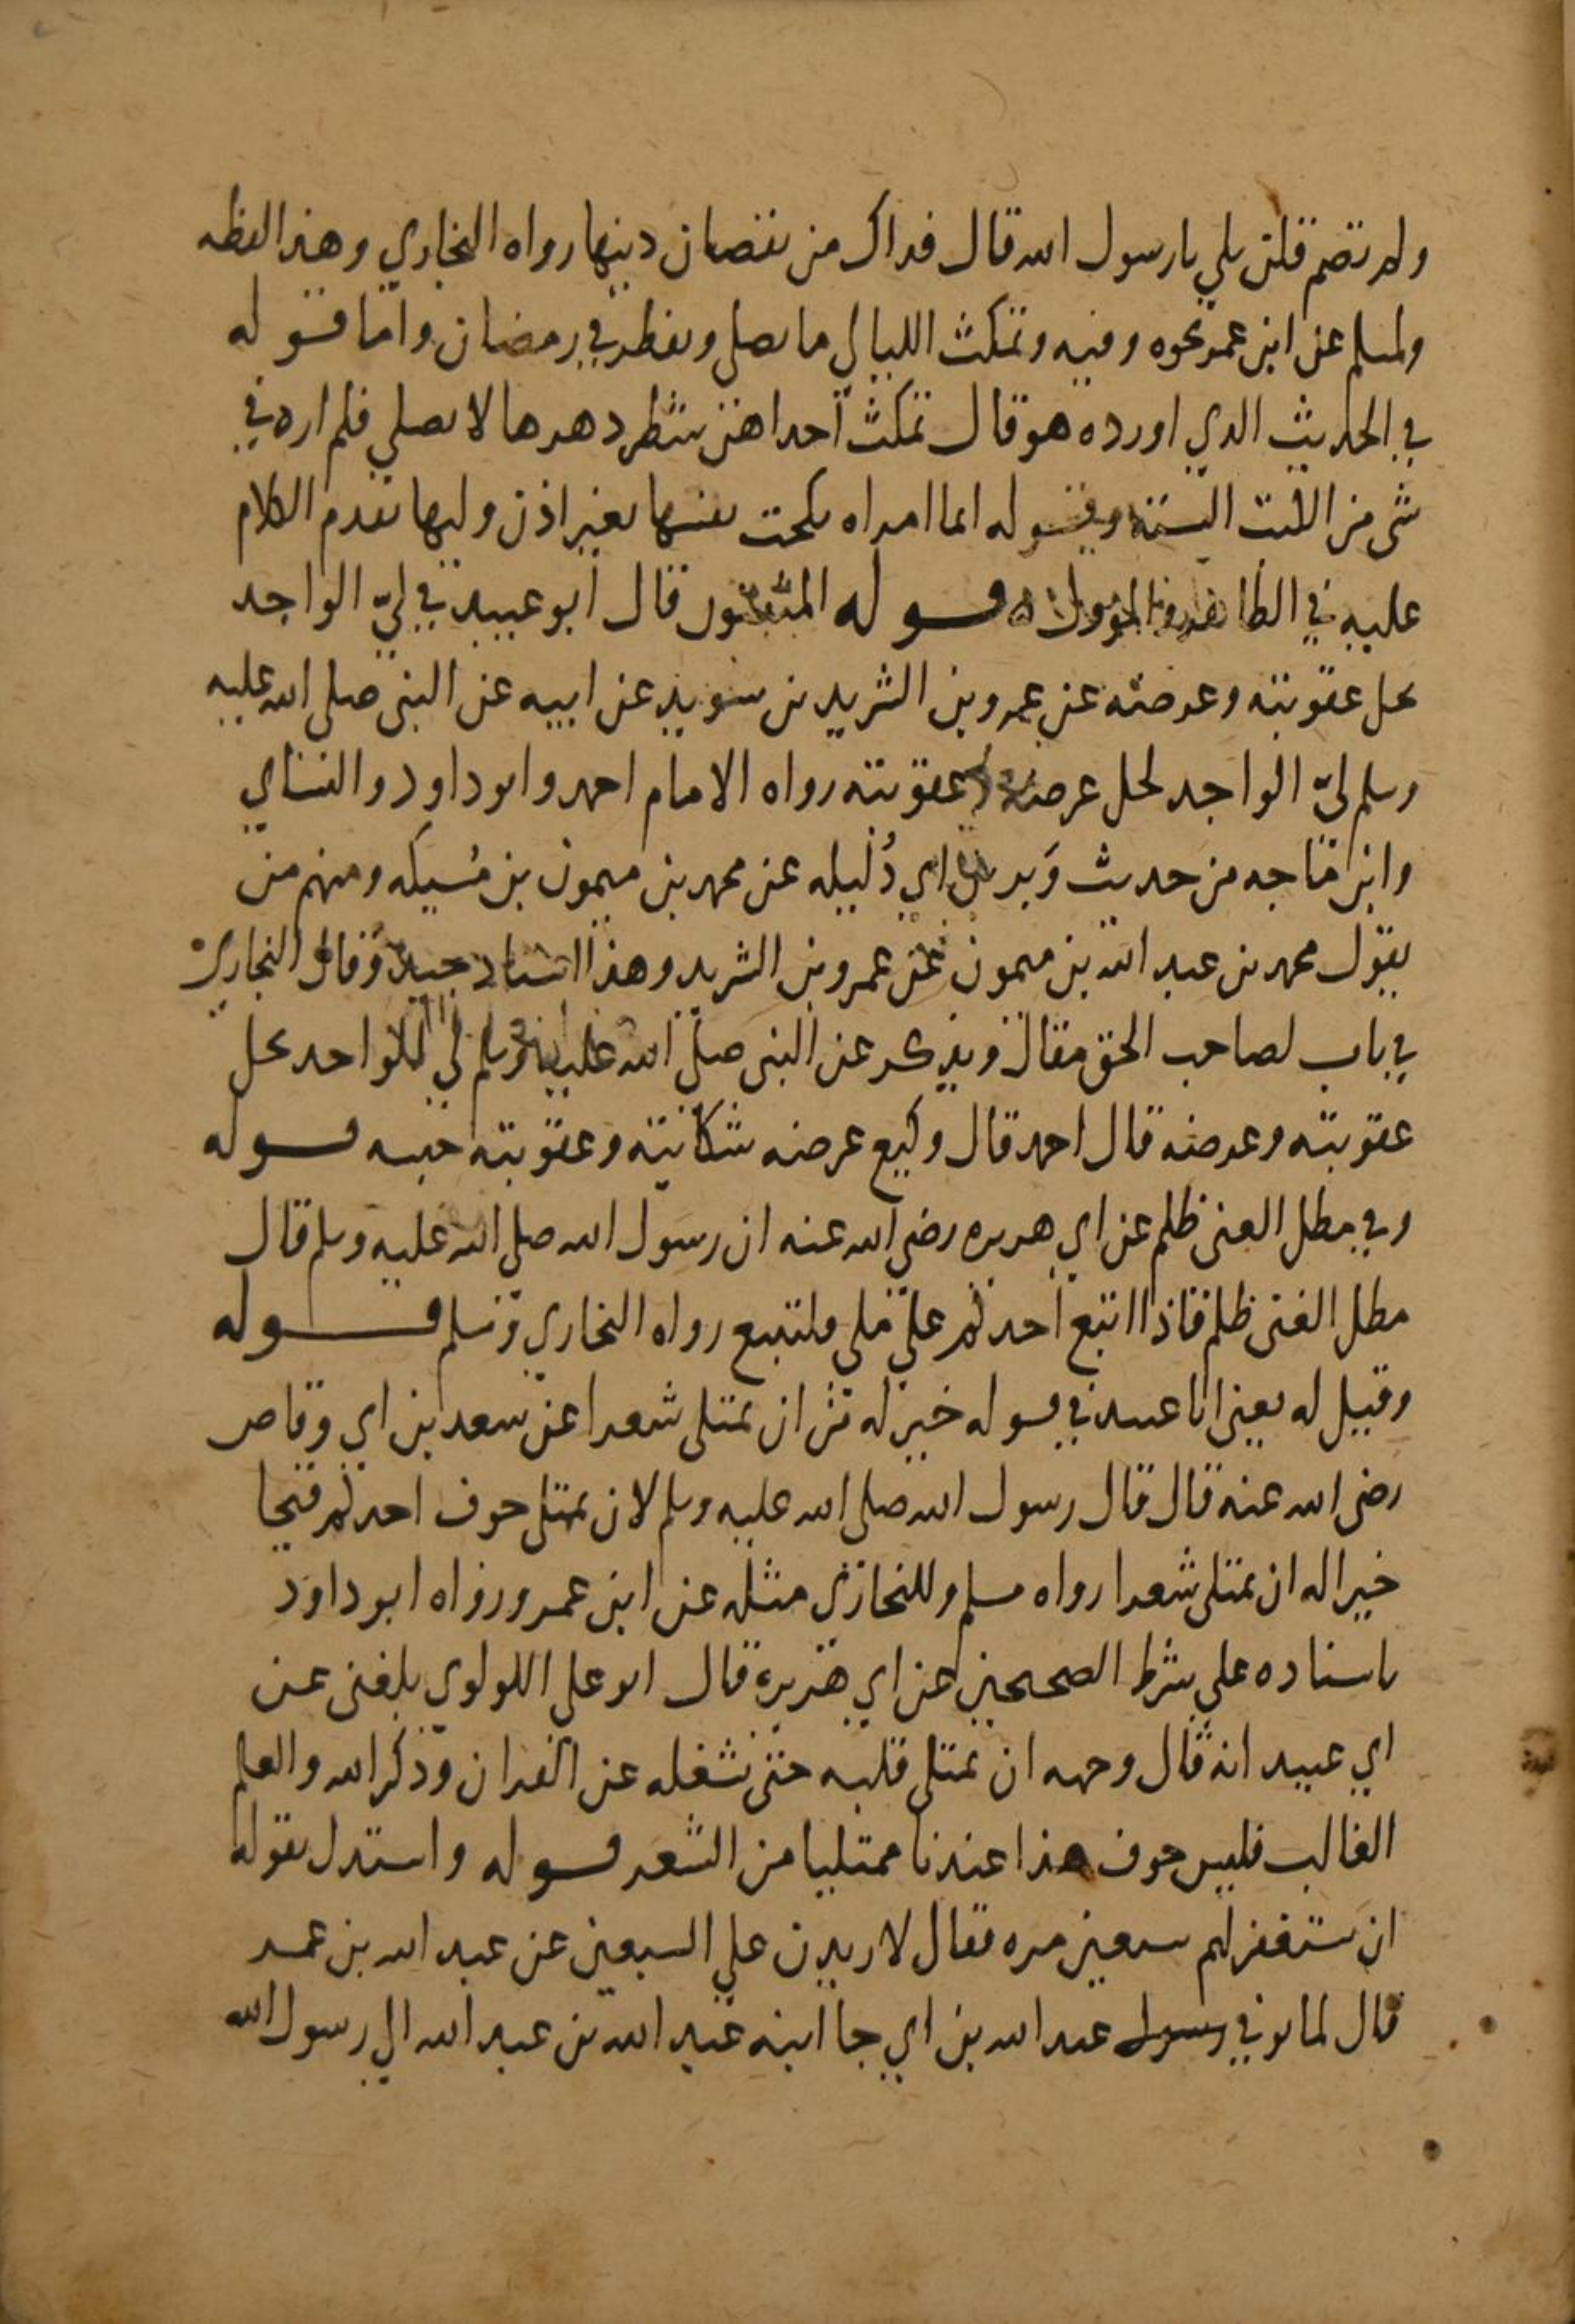 ولم تصم قلن بلي يا رسول الله قال فداك من نقصان دينها رواه البخاري وهذا لفظه
ولمسلم عن ابن عمر نحوه وفيه وتمكث الليالي ما تصلي وتفطر في رمضان واما قوله
في الحديث الدي اورده هو قال تمكث احداهن شطر دهرها لا تصلي فلم اره في
شى من الكتب الستة وقوله ايما امراه نكحت نفسها بغير اذن وليها تقدم الكلام
عليه في الظاهر والمؤول ه قوله المثبتون قال ابو عبيد في ليّ الواجد
يحل عقوبته وعرضه عن عمرو بن الشريد بن سويد عن ابيه عن النبى صلى الله عليه
وسلم ليّ الواجد يحل عرضه وعقوبته رواه الامام احمد وابو داود والنساي
وابن ماجه من حديث وَبر بن ابي دُليله عن محمد بن ميمون بن مُسيكه ومنهم من
يقول محمد بن عبد الله بن ميمون عن عمرو بن الشريد وهذا اسناد جيد وقال البخاري
في باب لصاحب الحق مقال ويذكر عن النبى صلى الله عليه وسلم لي الواجد يحل
عقوبته وعرضه قال احمد قال وكيع عرضه شكايته وعقوبته حبسه قوله
وفي مطل الغنى ظلم عن ابي هريره رضي الله عنه ان رسول الله صلى الله عليه وسلم قال
مطل الغنى ظلم فاذا اتبع احدكم علي ملى فليتبع رواه البخاري ومسلم قوله
وقيل له يعنى ابا عبيد في قوله خير له من ان يمتلى شعرا عن سعد بن ابي وقاص
رضى الله عنه قال قال رسول الله صلى الله عليه وسلم لان يمتلى جوف احدكم قيحا
خيرا له ان يمتلى شعرا رواه مسلم وللبخاري مثله عن ابن عمر ورواه ابو داود
باسناده علي شرط الصحيحين عن ابي هريرة قال ابو علي اللولوي بلغنى عن
ابي عبيد انه قال وجهه ان يمتلى قلبه حتى يشغله عن القران وذكر الله والعلم
الغالب فليس جوف هذا عندنا ممتليا من الشعر قوله واستدل بقوله
ان تستغفر لهم سبعين مره فقال لازيدن علي السبعين عن عبد الله بن عمر
قال لما توفي رسول عبد الله بن ابي جا ابنه عبد الله بن عبد الله الي رسول الله